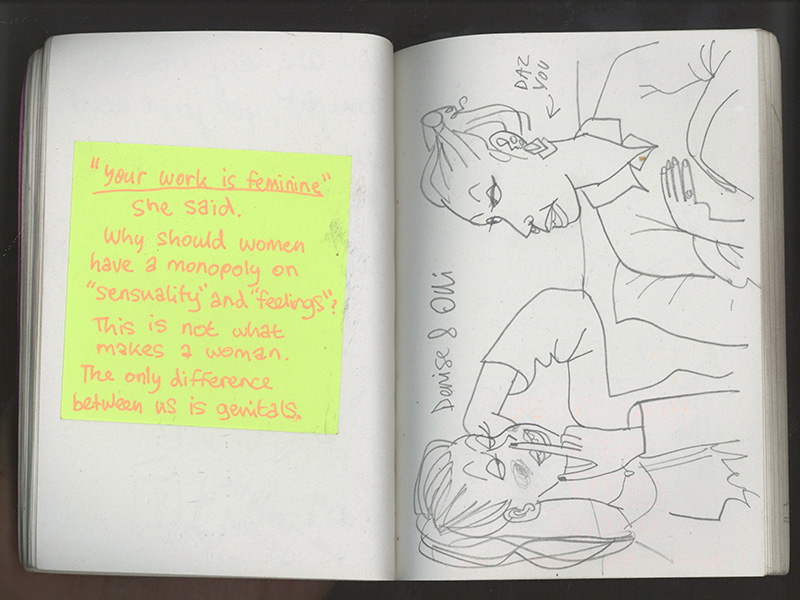 "Your work is feminine"
she said.
Why should women
have a monopoly on
"sensuality" and "feelings"?
This is not what
makes a woman.
The only difference
between us is genitals.
DAZ
YOU
Denise & Olli